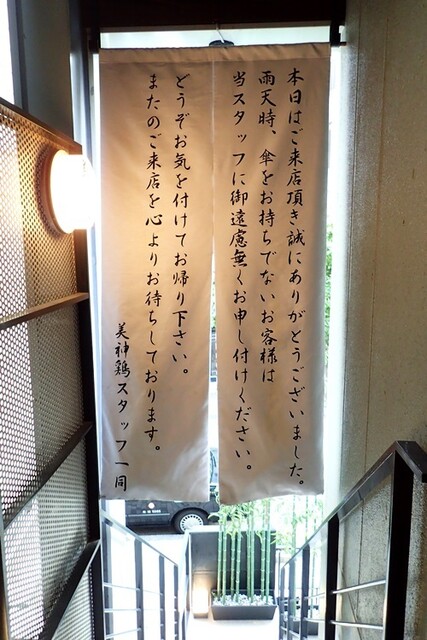 本日はご来店頂き誠にありがとうございました。
雨天時、傘をお持ちでないお客様は
当スタッフに御遠慮無くお申し付けください。
どうぞお気を付けてお帰り下さい。
またのご来店を心よりお待ちしております。
美神鶏スタッフ一同